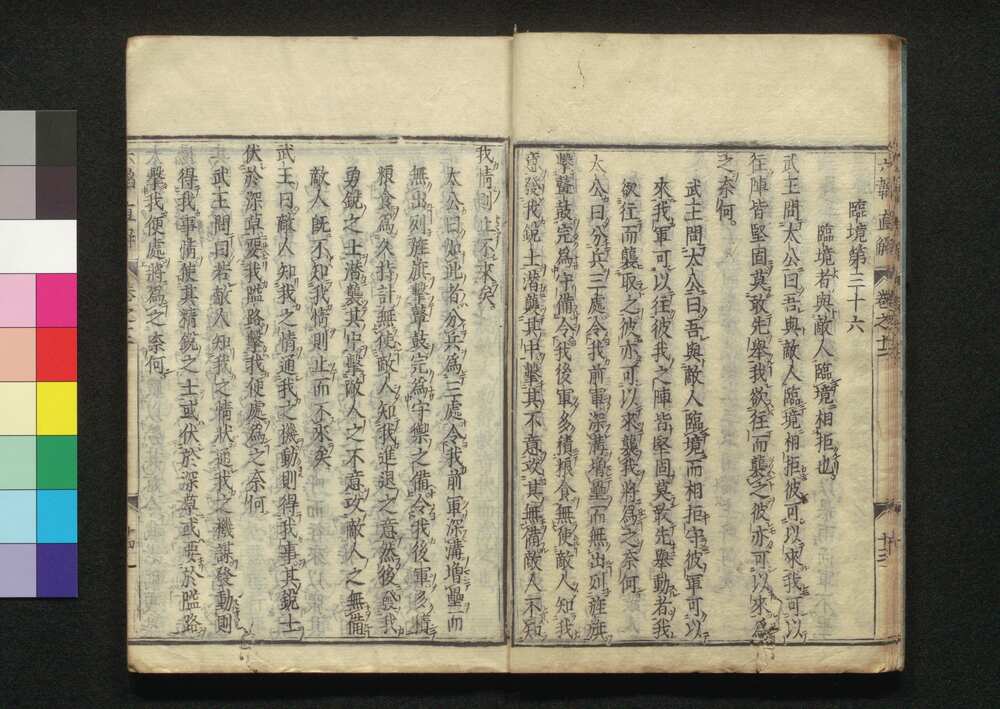 臨境第三十六
臨境者與敵人臨境相拒也
武王問太公曰吾與敵人臨境相拒彼可以來我可以
往陣皆堅固莫敢先舉我欲往而襲之彼亦可以來為
之奈何
武王問太公曰吾與敵人臨境而相拒守彼軍可以
來我軍可以往彼我之陣皆堅固莫敢先舉動者我
欲往而襲取之彼亦可以來襲我將為之奈何
太公曰分兵三處令我前軍深溝增壘而無出列旌旗
擊鼙鼓完為守備令我後軍多積糧食無使敵人知我
意發我銳士潛襲其中擊其不意攻其無備敵人不知
我情則止不來矣
太公曰如此者分兵為三處令我前軍深溝增壘而
無出列旌旗擊鼙鼓完為守禦之備令我後軍多積
糧食為久持計無使敵人知我進退之意然後發我
勇銳之士潛襲其中擊敵人之不意攻敵人之無備
敵人既不知我情則止而不來矣
武王曰敵人知我之情通我之機動則得我事其銳士
伏於深草要我隘路擊我便處為之奈何
武王問曰若敵人知我之情狀通我之機謀發動則
得我事情使其精銳之士或伏於深草或要於隘路
擊我便處將為之奈何